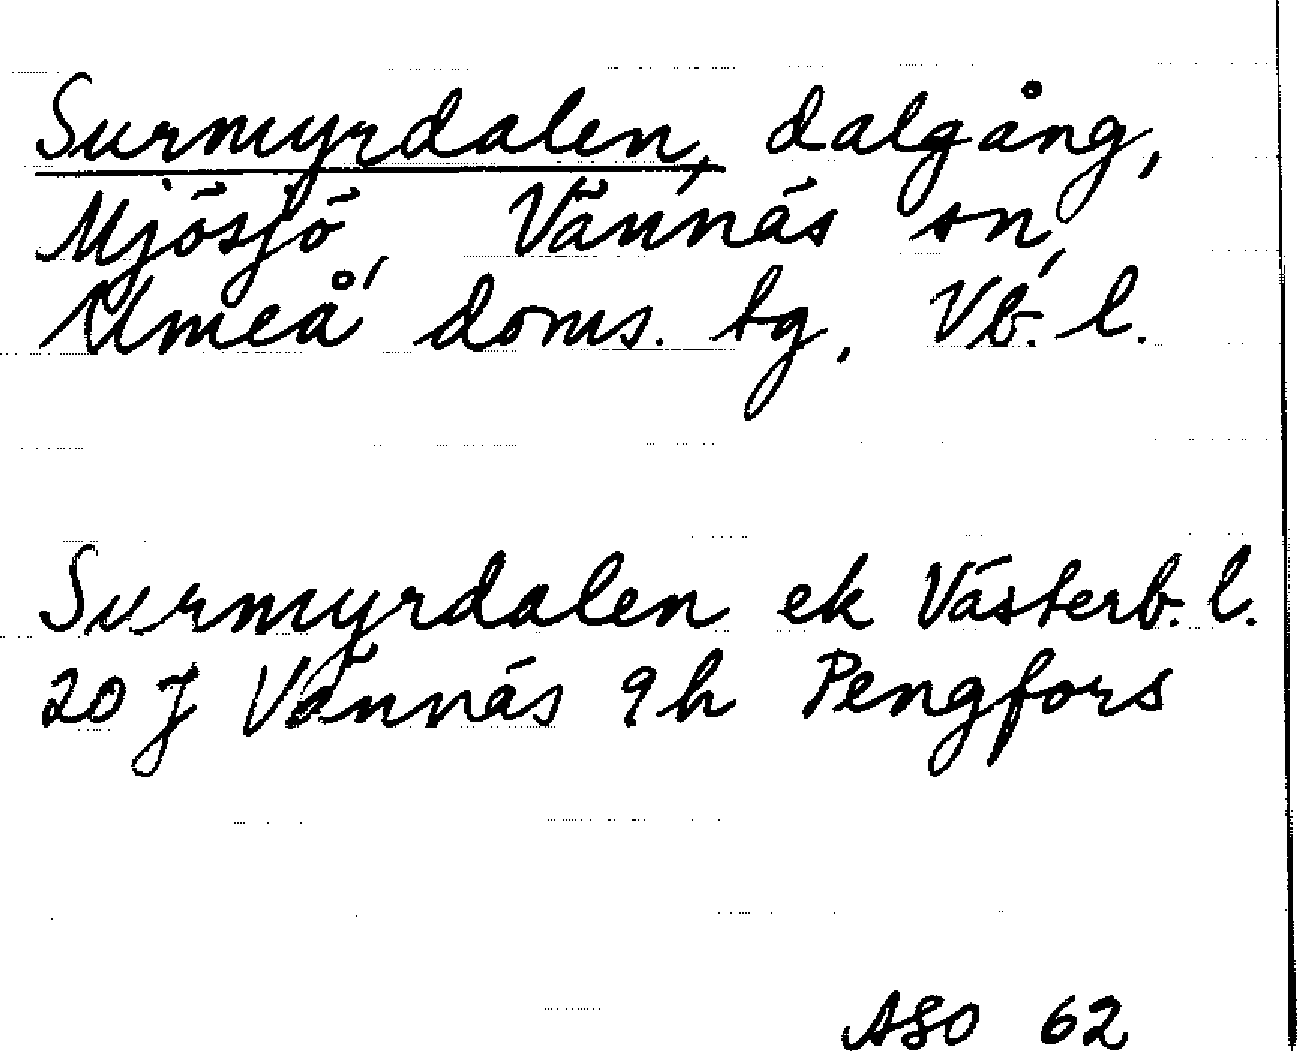 Surmyrdalen, dalgång,
Mjösjö, Vännäs sn,
Umeå doms. tg, Vb. l.
Surmyrdalen ek Västerb. l.
20 J Vännäs 9h Pengfors
ASO 62